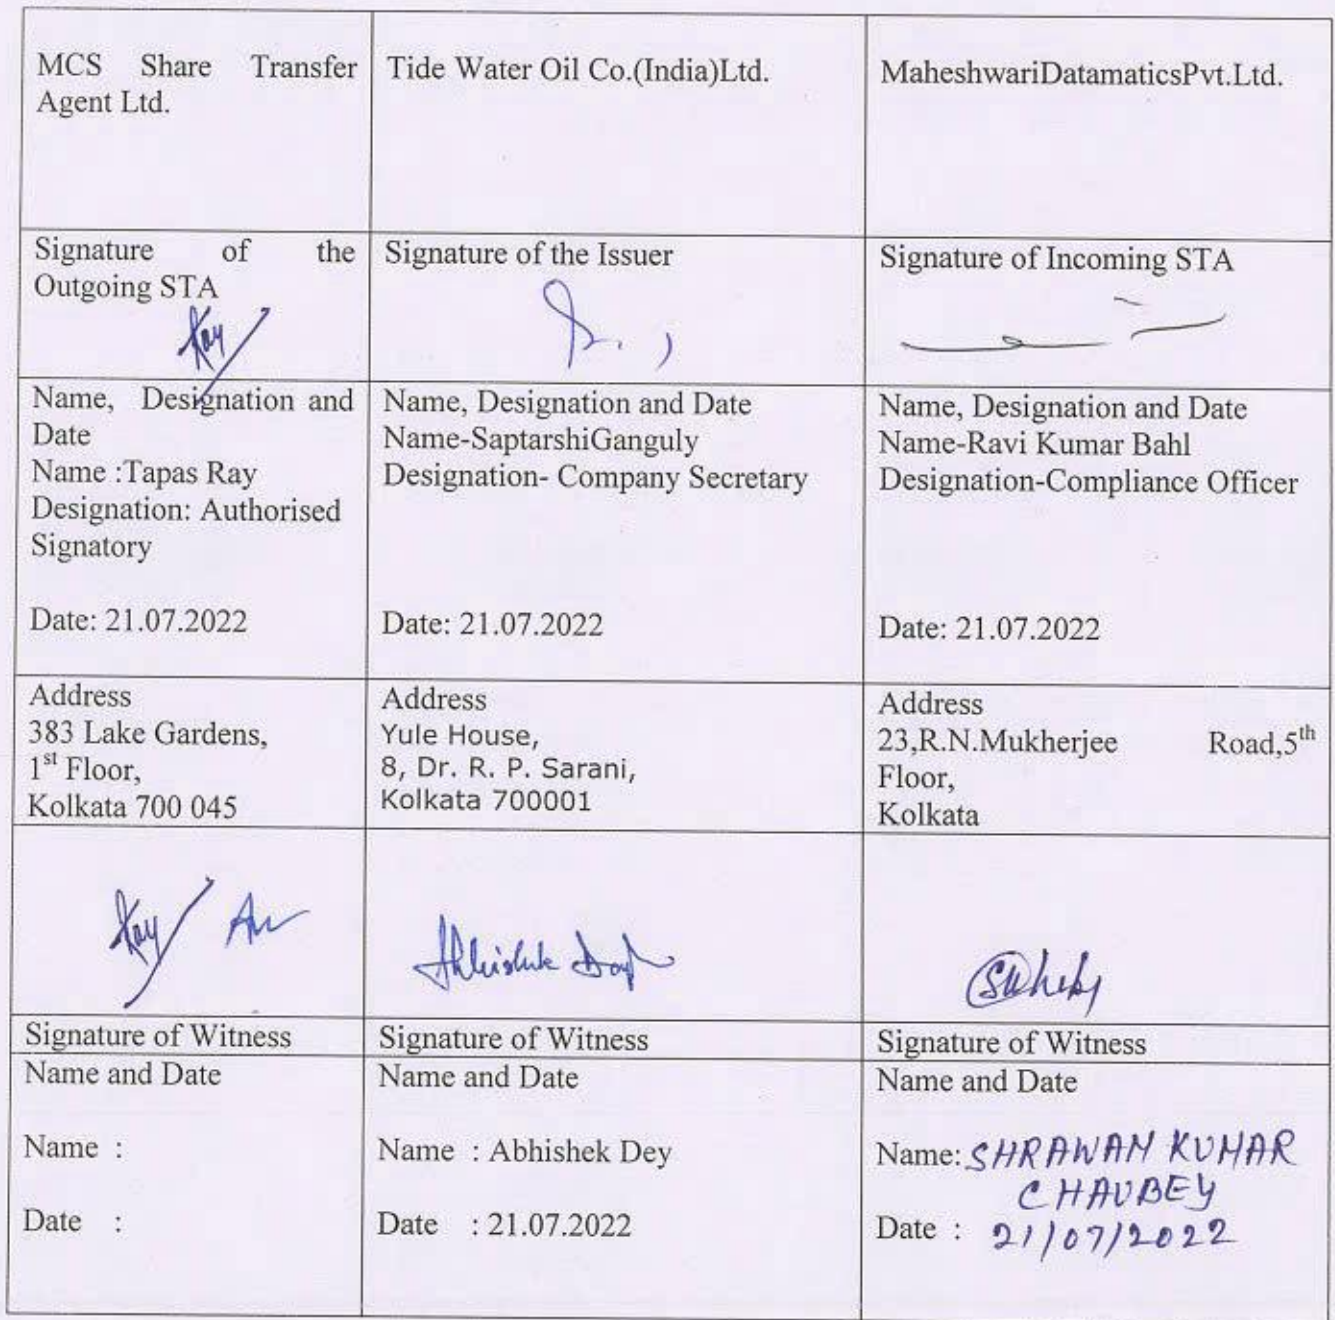 MCS Share Transfer
Agent Ltd.
Tide Water Oil Co.(India)Ltd.
MaheshwariDatamaticsPvt.Ltd.
Signature of the
Outgoing STA
Ray
Signature of the Issuer
Signature of Incoming STA
Name, Designation and
Date
Name :Tapas Ray
Designation: Authorised
Signatory
Date: 21.07.2022
Name, Designation and Date
Name-SaptarshiGanguly
Designation- Company Secretary
Date: 21.07.2022
Name, Designation and Date
Name-Ravi Kumar Bahl
Designation-Compliance Officer
Date: 21.07.2022
Address
383 Lake Gardens,
1st Floor,
Kolkata 700 045
Address
Yule House,
8, Dr. R. P. Sarani,
Kolkata 700001
Address
23,R.N.Mukherjee Road,5th
Floor,
Kolkata
Ray
Abhishek Dey
Signature of Witness
Signature of Witness
Signature of Witness
Name and Date
Name :
Date :
Name and Date
Name : Abhishek Dey
Date : 21.07.2022
Name and Date
Name: SHRAWAN KUMAR
CHAUBEY
Date : 21/07/2022